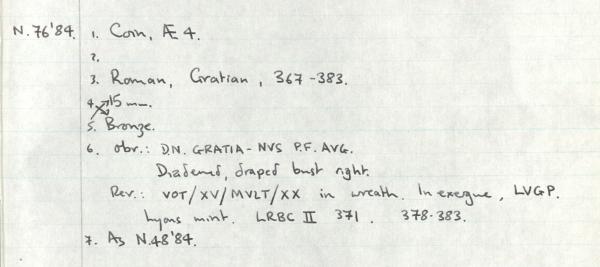 N.76'84. 1. Coin, Æ 4.
2.
3. Roman, Gratian, 367-383.
4. 15 mm.
5. Bronze.
6. obv.: D.N. GRATIA-NVS P.F. AVG.
Diademed, draped bust right.
Rev.: VOT/XV/MVLT/XX in wreath. In exergue, LVGP.
Lyons mint. LRBC II 371. 378-383.
7. As N.48'84.